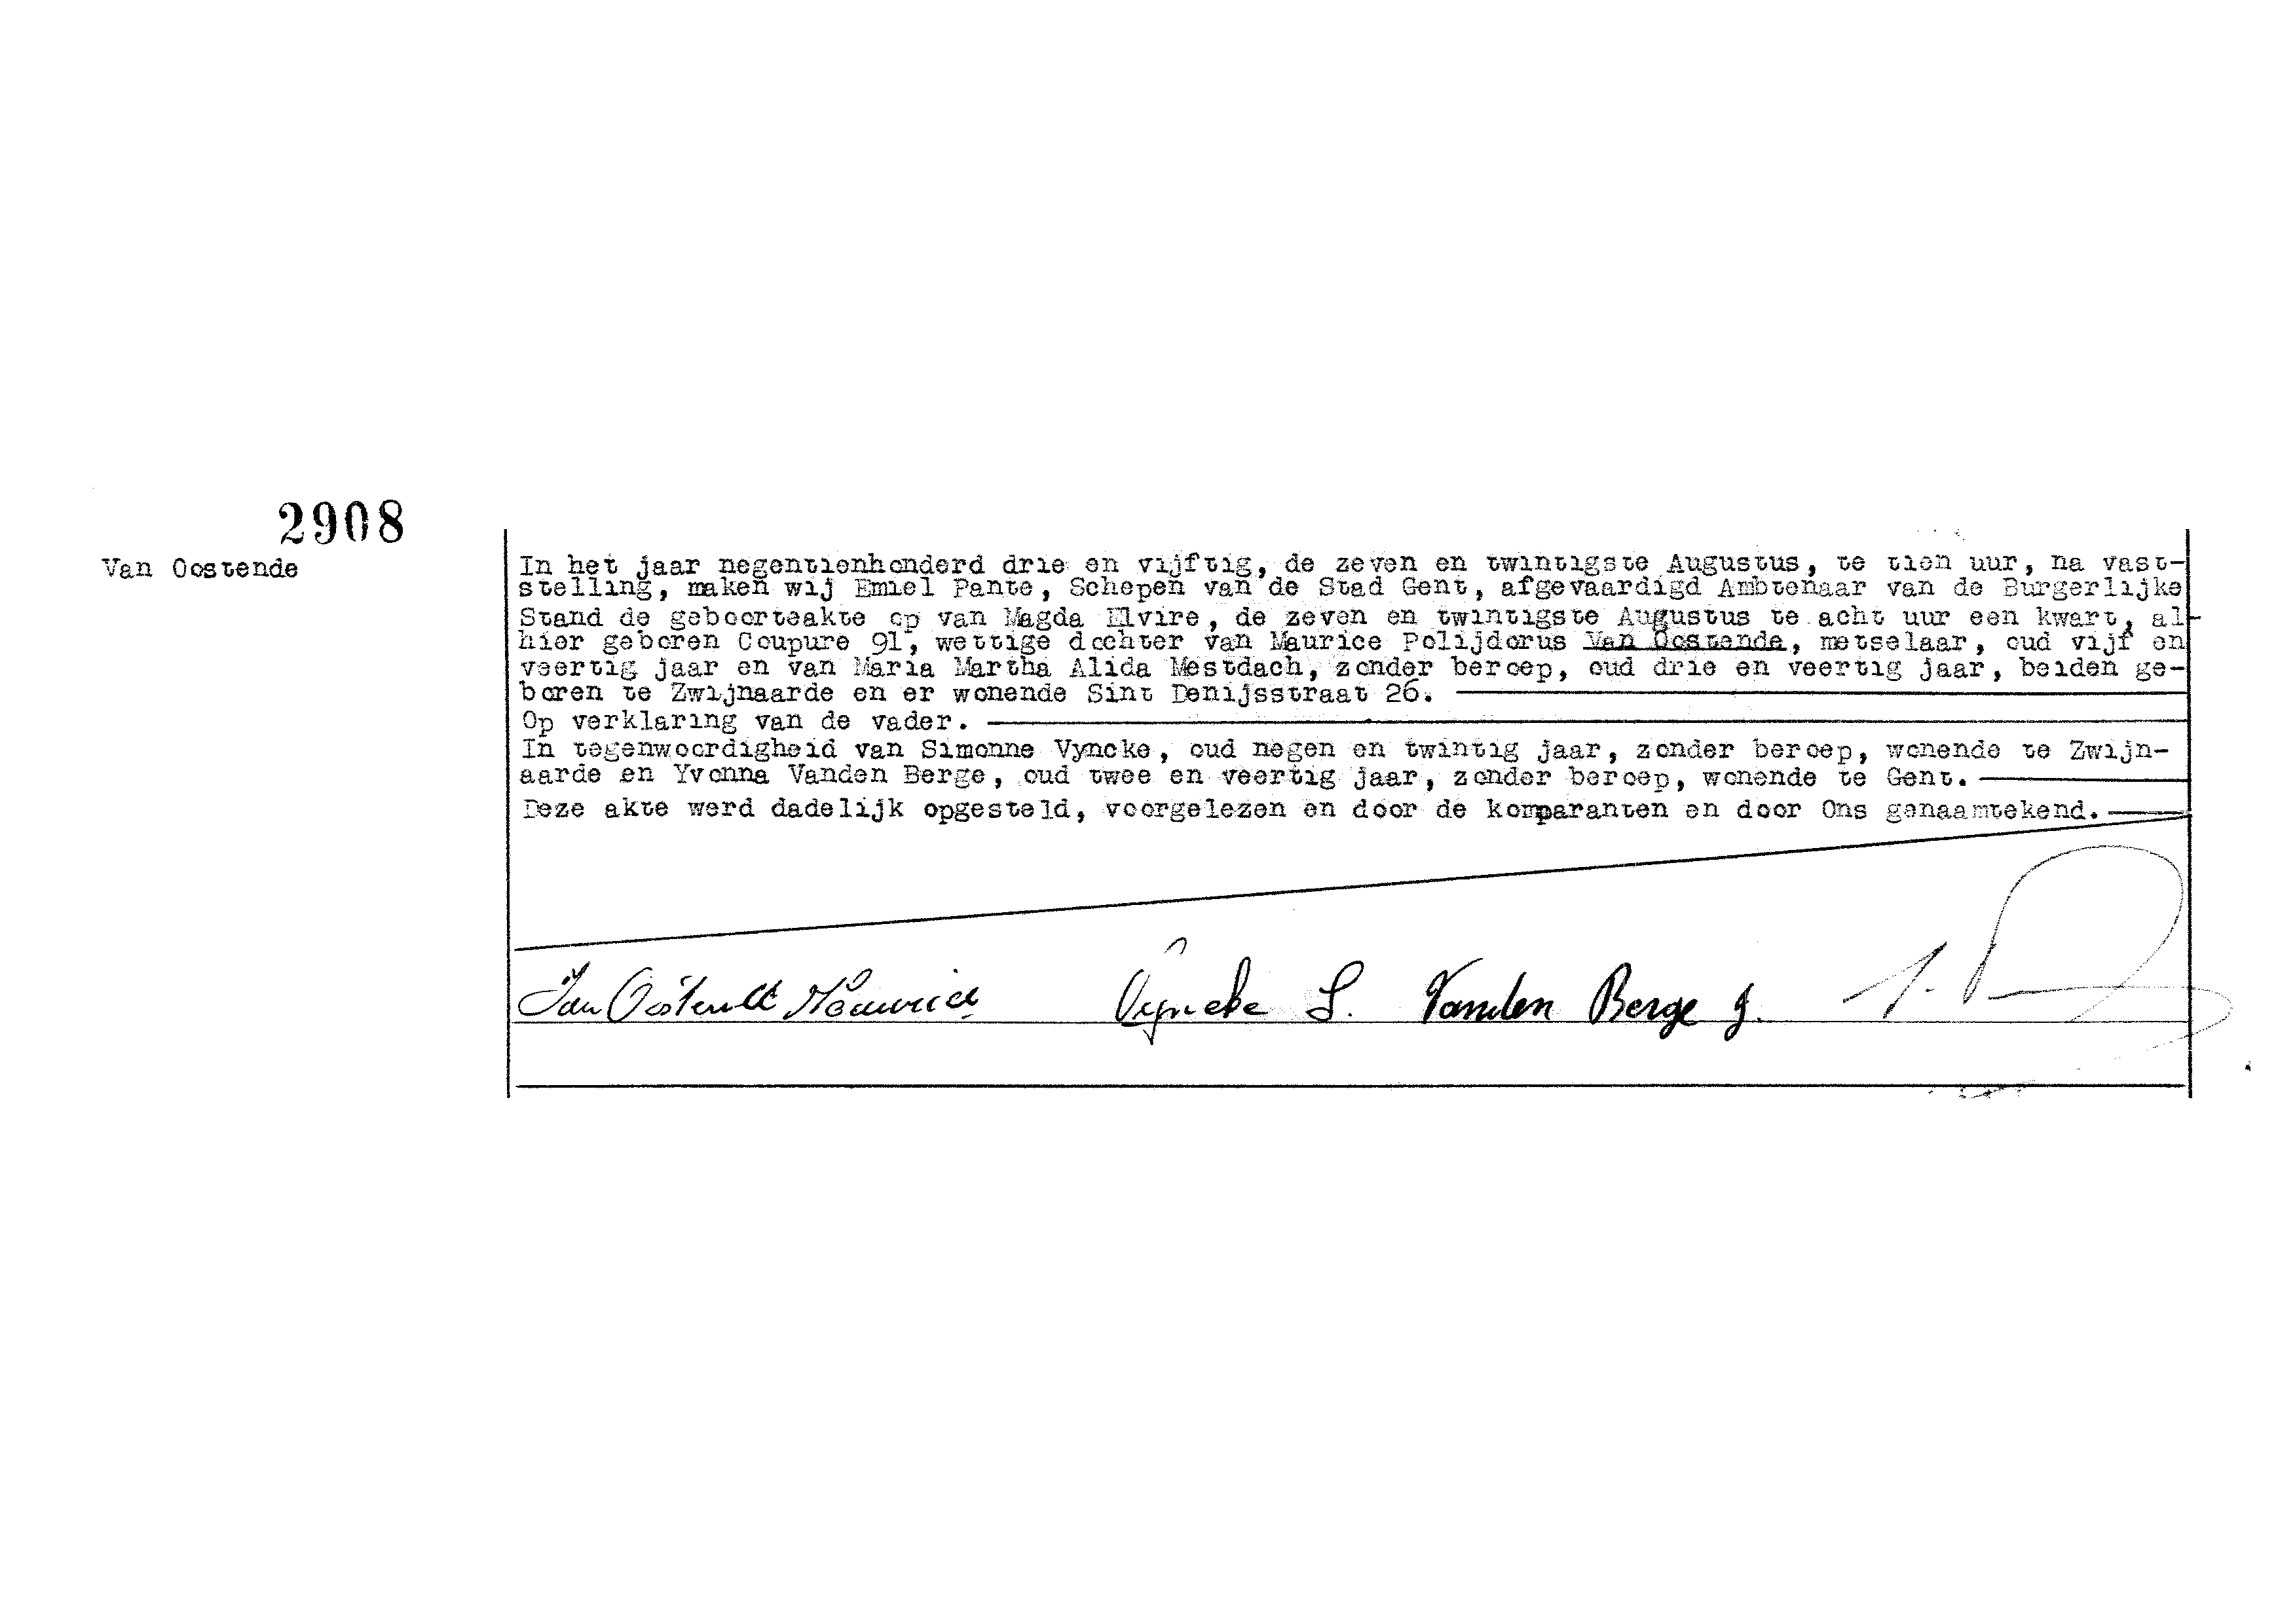 2908
Van Oostende
In het jaar negentienhonderd drie en vijftig, de zeven en twintigste Augustus, te tien uur, na vast-
stelling, maken wij Emiel Pante, Schepen van de Stad Gent, afgevaardigd Ambtenaar van de Burgerlijke
Stand de geboorteakte op van Magda Elvire, de zeven en twintigste Augustus te acht uur een kwart, al-
hier geboren Coupure 91, wettige dochter van Maurice Polijdorus Van Oostende, metselaar, oud vijf en
veertig jaar en van Maria Martha Alida Mestdach, zonder beroep, oud drie en veertig jaar, beiden ge-
boren te Zwijnaarde en er wonende Sint Denijsstraat 26.
Op verklaring van de vader.
In tegenwoordigheid van Simonne Vyncke, oud negen en twintig jaar, zonder beroep, wonende te Zwijn-
aarde en Yvonna Vanden Berge, oud twee en veertig jaar, zonder beroep, wonende te Gent.
Deze akte werd dadelijk opgesteld, voorgelezen en door de komparanten en door Ons genaamtekend.
Van Oostende Maurice Vyncke S. Vanden Berge y.